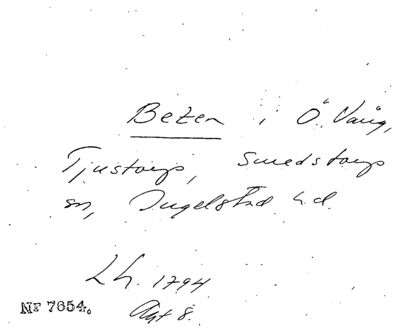 Beten i Ö. Vång,
Tjustorp, Smedstorps
sn, Ingelstad h.d.
Lh. 1794
Akt 8.
NF 7654.